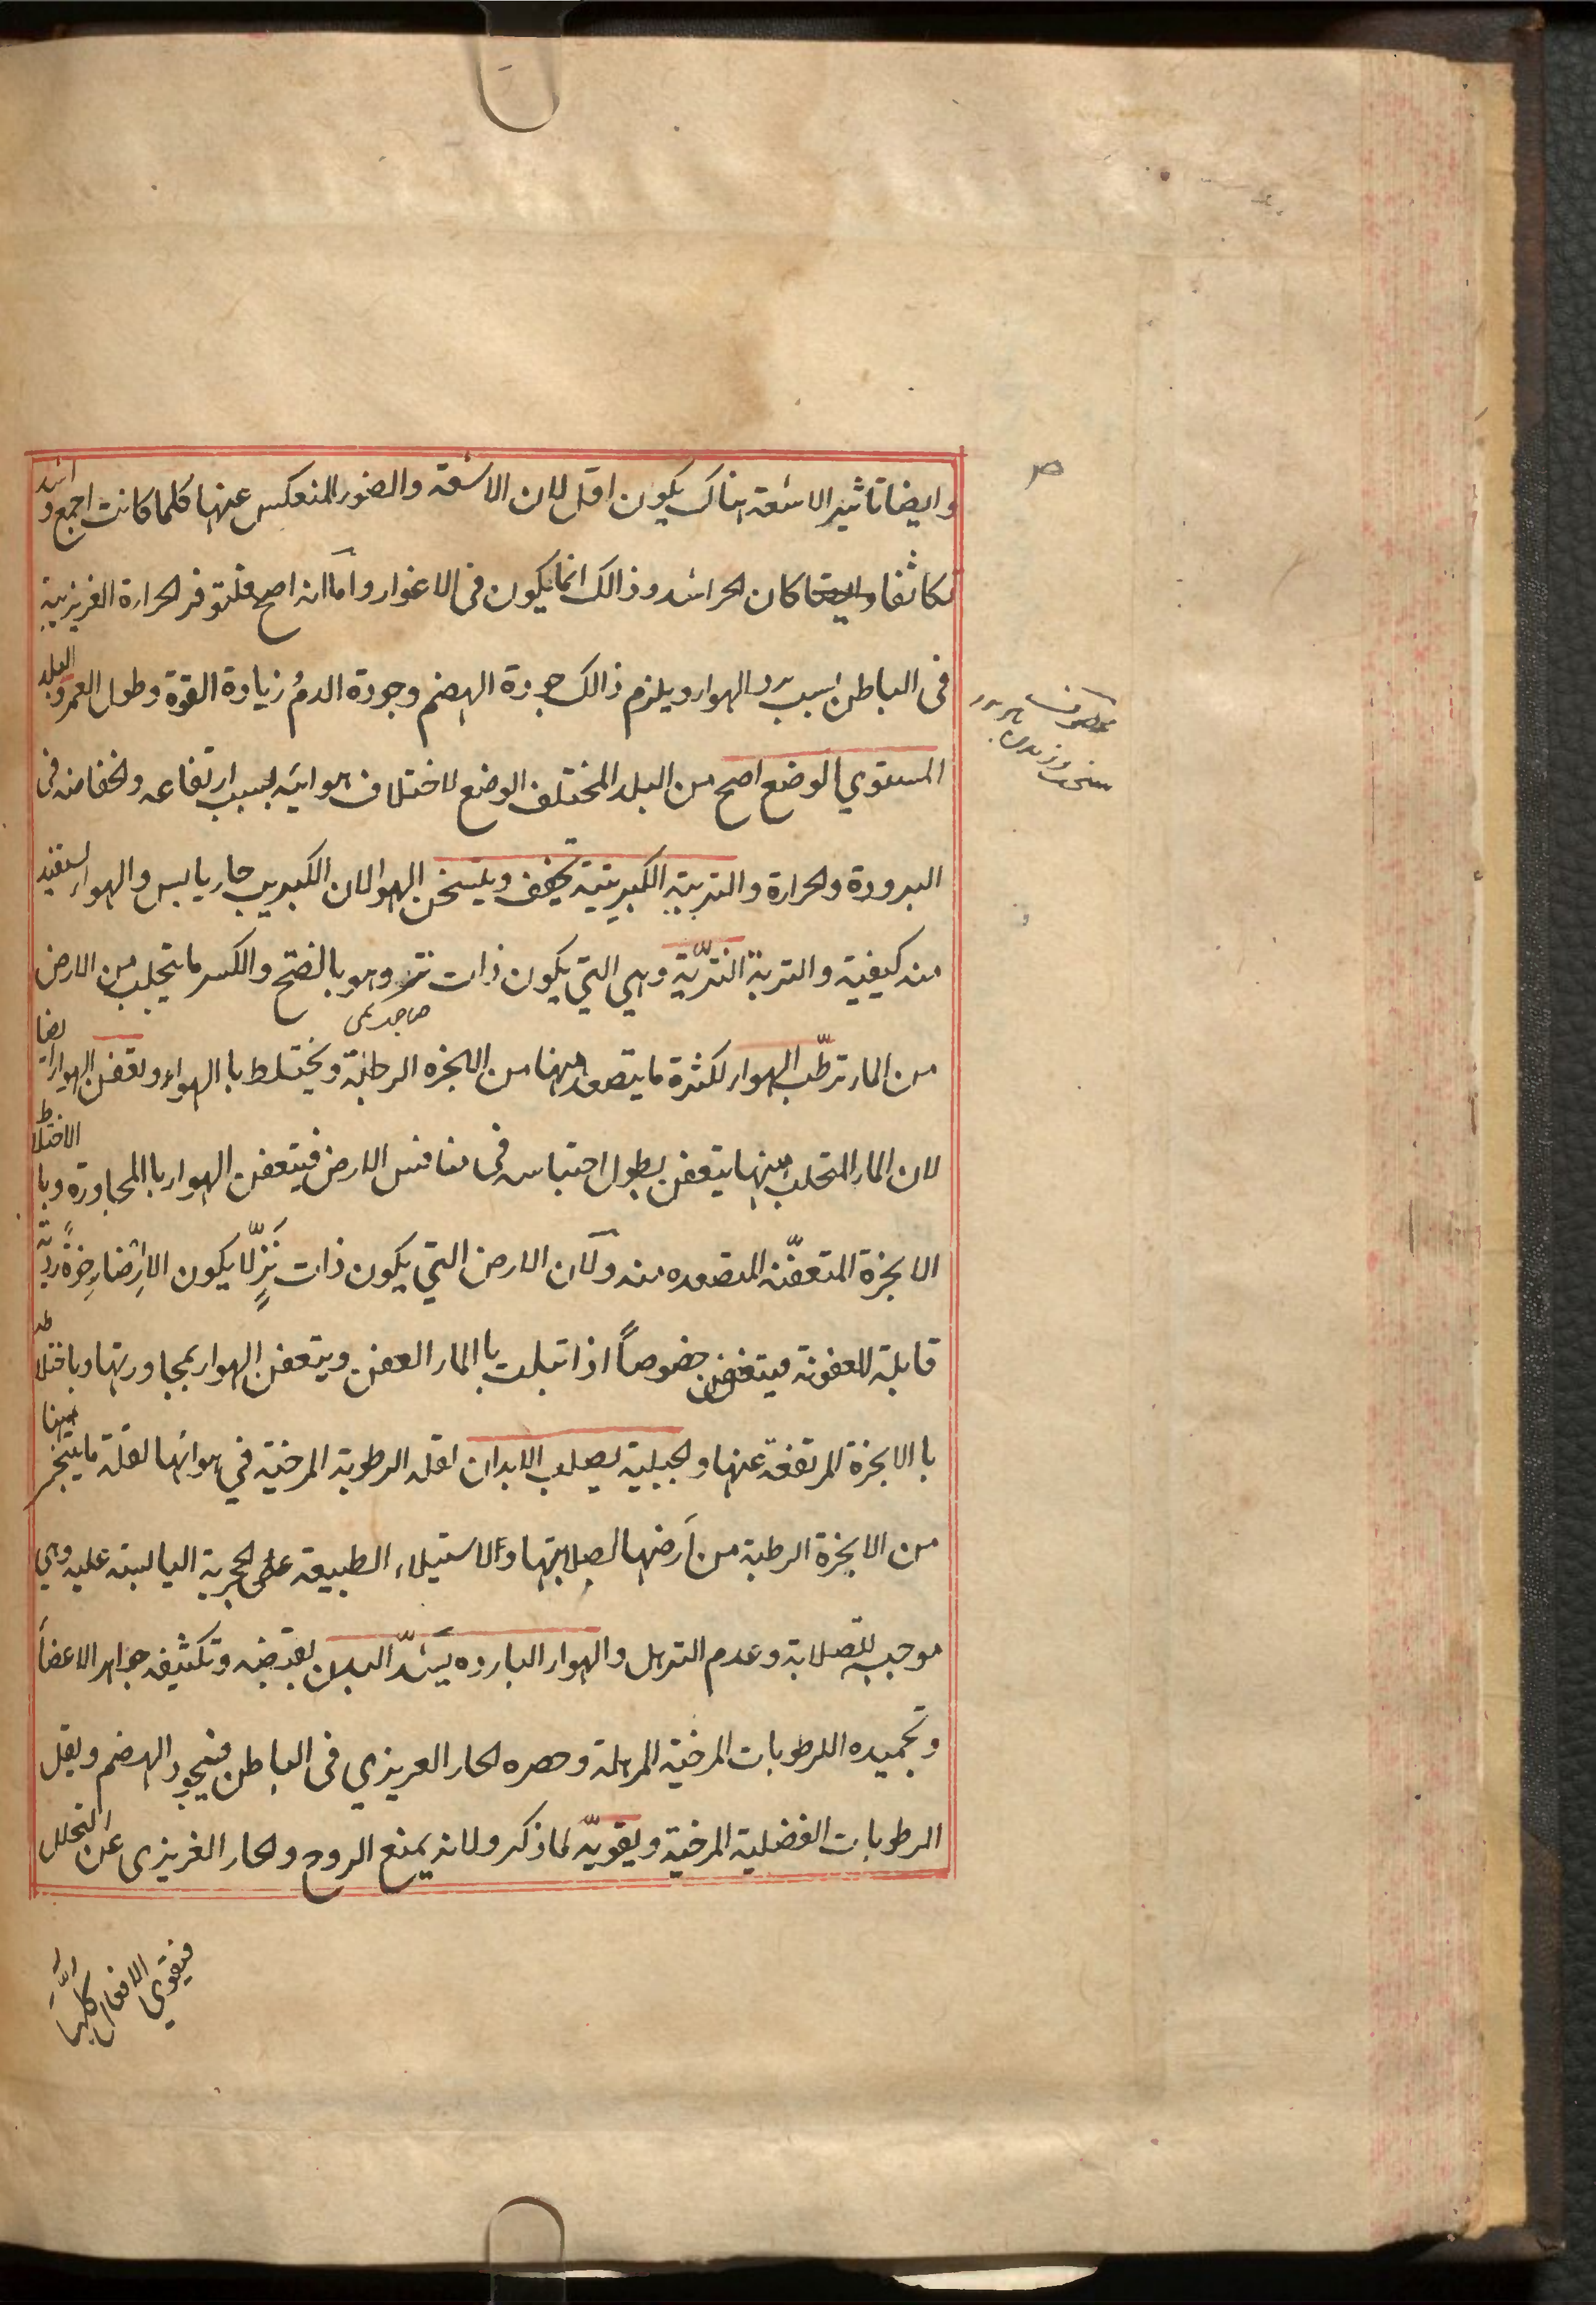 وايضا تاثير الاشعة هناك يكون اقل لان الاشعة والضور المنعكس عنها كلما كانت اجمع و اشد
تكاثفا كان الحر اشد وذالك انما يكون فى الاغوار واما انه اصح فلتوفر الحرارة الغريزية
فى الباطن لسبب برد الهوار ويلزم ذالك جودة الهضم وجودة الدم زيادة القوة وطول العمر والبلد
المستوي الوضع اصح من البلد المختلف الوضع لاختلاف هوائيه بسبب ارتفاعه وانخفاضه فى
البرودة والحرارة والتربة الكبريتية تجفف ويسخن الهوا لان الكبريت حار يابس والهوار يستفيد
منه كيفية والتربة النزية وهي التي يكون ذات نز وهو بالفتح والكسر ما يتحلب من الارض
من المار ترطب الهوار لكثرة ما يتصعد منها من الابخره الرطبة ويختلط با الهواء ويعفن الهوار ايضا
لان المار المتحلب منها يتعفن بطول احتباسه فى منافس الارض فيتعفن الهوار با المجاورة وبا الاختلاط
الابخرة المتعفنه المتصعده منه ولان الارض التي يكون ذات نز لا يكون الا ارضا رخوة ردية
قابلة للعفونة فيتعفن خصوصا اذا تبلت با المار العفن ويتعفن الهوار بمجاورتها وباختلاطه
با الابخرة المرتفعة عنها والجبلية يصلب الابدان لقلة الرطوبة المرخية في هوائها لقلة ما يتبخر منها
من الابخرة الرطبة من ارضها لصلابتها ولاستيلاء الطبيعة الحجرية اليابسة عليه وهي
موجبه للصلابة وعدم الترهل والهوار البارده يشد البدن بقبضه وتكثيفه جواهر الاعضا
وتجميده الرطوبات المرخية المرهلة وحصره الحار العريزي فى الباطن فيجود الهضم ويقل
الرطوبات الفضلية المرخية ويقويه لما ذكر ولانه يمنع الروح والحار الغريزى عن التحلل
فيقوي الافعال كلها